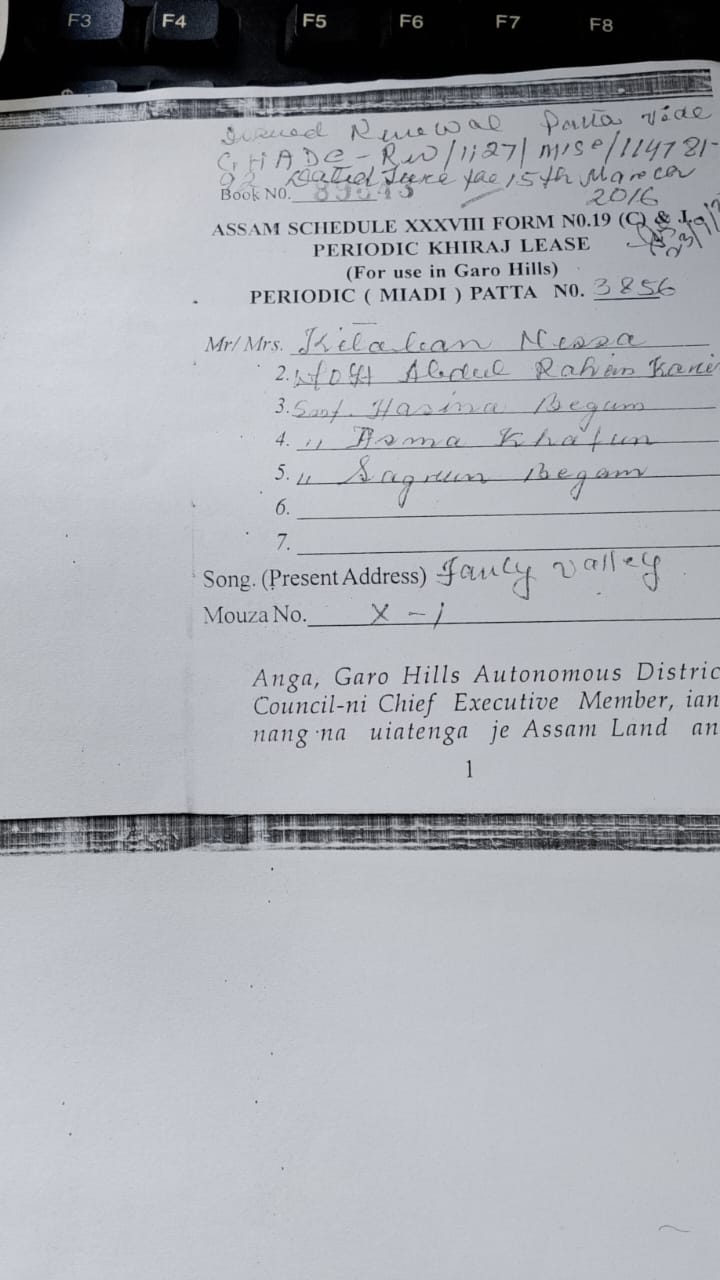 F3 F4 F5 F6 F7 F8
Issued Renewal Patta vide
GHADC-Rev/1,27/Mise/114781-
92 Dated Tura the 15th March
Book N0. 89343 2016
ASSAM SCHEDULE XXXVIII FORM N0.19 (C) & J.
PERIODIC KHIRAJ LEASE
(For use in Garo Hills)
PERIODIC ( MIADI ) PATTA N0. 3856
Mr/Mrs. Nessa
2. Abdul
3. Smt. Hasina Begum
4. ,, Asma Khatun
5. ,, Begam
6.
7.
Song. (Present Address) valley
Mouza No. X - i
Anga, Garo Hills Autonomous Distric
Council-ni Chief Executive Member, ian
nang·na uiatenga je Assam Land an
1